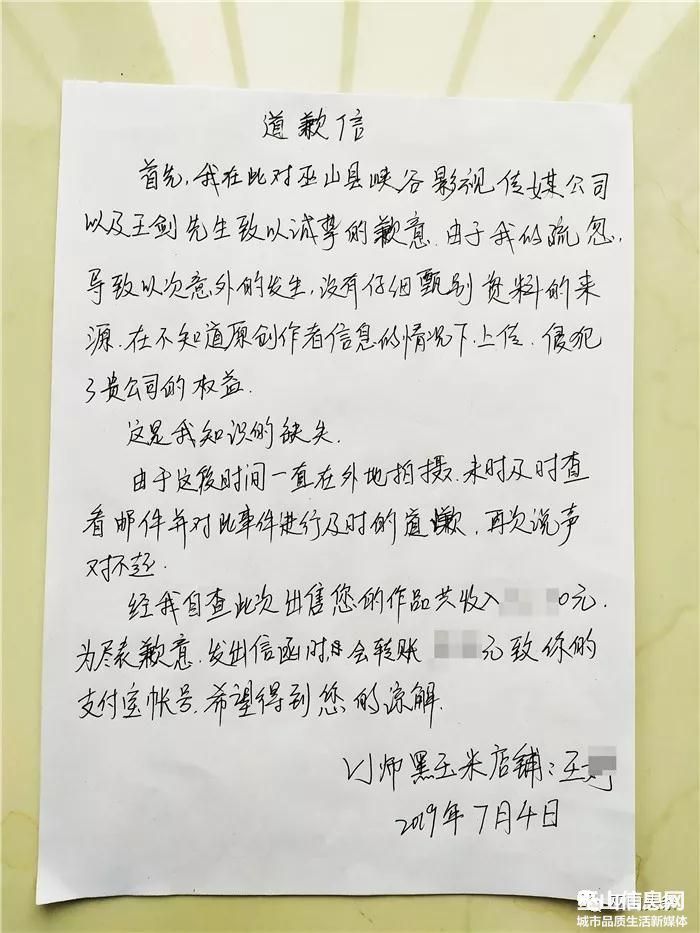 道歉信
首先,我在此对巫山县峡谷影视传媒公司
以及王剑先生致以诚挚的歉意.由于我的疏忽,
导致以次意外的发生,没有仔细甄别资料的来
源.在不知道原创作者信息的情况下.上传.侵犯
了贵公司的权益.
这是我知识的缺失.
由于这段时间一直在外地拍摄.未时及时查
看邮件并对此事件进行及时的道歉,再次说声
对不起.
经我自查此次出售您的作品共收入0元.
为尽表歉意.发出信函时会转账元致你的
支付宝帐号.希望得到您的谅解.
VJ师黑玉米店铺:王
2019年7月4日
山信息网
城市品质生活新媒体